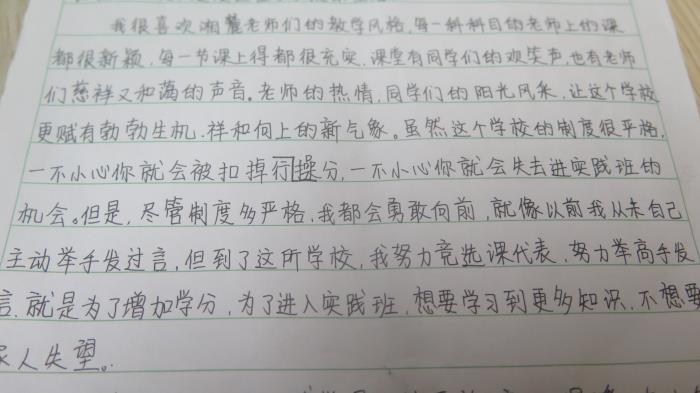 我很喜欢湘麓老师们的教学风格,每一科科目的老师上的课
都很新颖,每一节课上得都很充实,课堂有同学们的欢笑声,也有老师
们慈祥又和蔼的声音。老师的热情,同学们的阳光风采,让这个学校
更赋有勃勃生机,祥和向上的新气象。虽然这个学校的制度很严格,
一不小心你就会被扣掉行操分,一不小心你就会失去进实践班的
机会。但是,尽管制度多严格,我都会勇敢向前,就像以前我从未自己
主动举手发过言,但到了这所学校,我努力竞选课代表,努力举高手发
言,就是为了增加学分,为了进入实践班,想要学习到更多知识,不想要
家人失望。